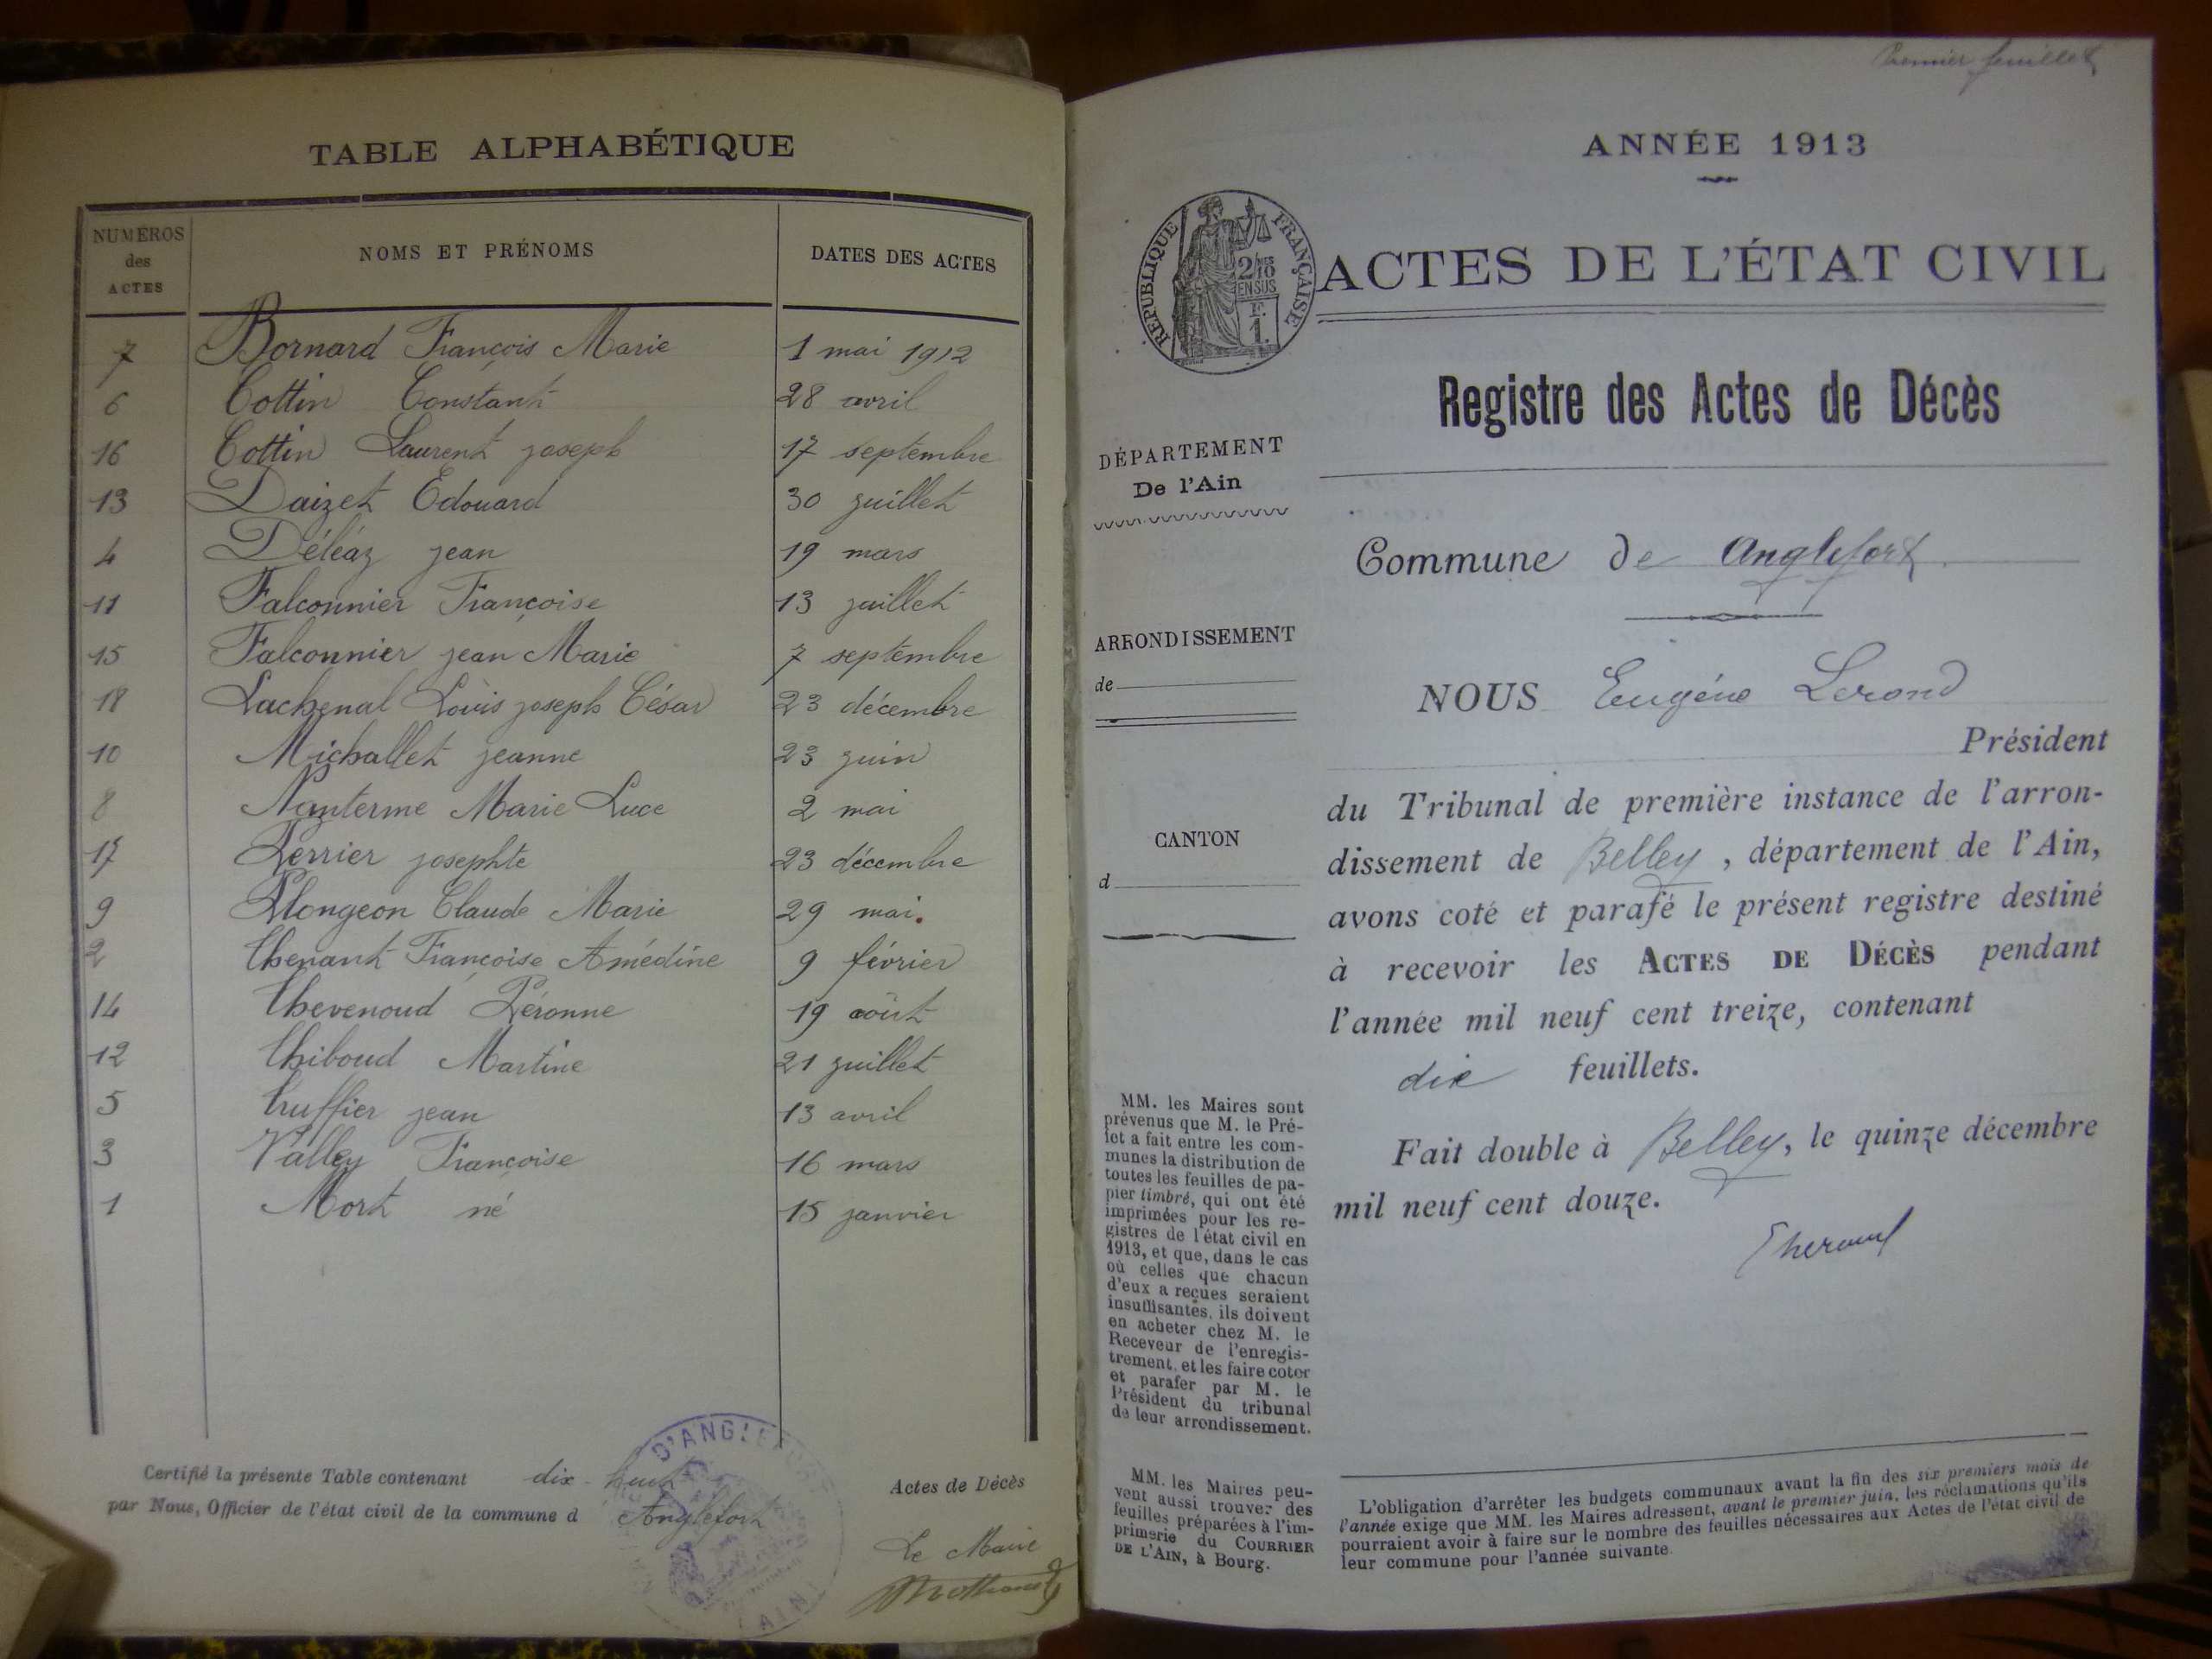 TABLE ALPHABÉTIQUE
NUMÉROS des ACTES NOMS ET PRÉNOMS DATES DES ACTES
7 Bornard François Marie 1 mai 1912
6 Cottin Constant 28 avril
16 Cottin Laurent joseph 17 septembre
13 Daizet Edouard 30 juillet
4 Déléaz jean 19 mars
11 Falconnier Françoise 13 juillet
15 Falconnier jean Marie 7 septembre
18 Lachenal Louis joseph César 23 décembre
10 Michallet jeanne 23 juin
8 Nanterme Marie Luce 2 mai
17 Perrier josephte 23 décembre
9 Plongeon Claude Marie 29 mai.
2 Thenant Françoise Amédine 9 février
14 Thevenoud Péronne 19 août
12 Thiboud Martine 21 juillet
5 Truffier jean 13 avril
3 Valley Françoise 16 mars
1 Mort né 15 janvier
Certifié la présente Table contenant dix-huit Actes de Décès
par Nous, Officier de l'état civil de la commune d Anglefort
Le Maire
D'ANGLEFORT
AIN
Premier feuillet
ANNÉE 1913
RÉPUBLIQUE FRANÇAISE
2/10 MES
EN SUS
F.
1.
ACTES DE L'ÉTAT CIVIL
Registre des Actes de Décès
DÉPARTEMENT
De l'Ain
Commune de Anglefort
ARRONDISSEMENT
de
NOUS Eugène Lerond
Président
du Tribunal de première instance de l'arron-
CANTON
d
dissement de Belley, département de l'Ain,
avons coté et parafé le présent registre destiné
à recevoir les ACTES DE DÉCÈS pendant
l'année mil neuf cent treize, contenant
dix feuillets.
Fait double à Belley, le quinze décembre
mil neuf cent douze.
MM. les Maires sont
prévenus que M. le Pré-
fet a fait entre les com-
munes la distribution de
toutes les feuilles de pa-
pier timbré, qui ont été
imprimées pour les re-
gistres de l'état civil en
1913, et que, dans le cas
où celles que chacun
d'eux a reçues seraient
insuffisantes, ils doivent
en acheter chez M. le
Receveur de l'enregis-
trement, et les faire coter
et parafer par M. le
Président du tribunal
de leur arrondissement.
MM. les Maires peu-
vent aussi trouver des
feuilles préparées à l'im-
primerie du COURRIER
DE L'AIN, à Bourg.
L'obligation d'arrêter les budgets communaux avant la fin des six premiers mois de
l'année exige que MM. les Maires adressent, avant le premier juin, les réclamations qu'ils
pourraient avoir à faire sur le nombre des feuilles nécessaires aux Actes de l'état civil de
leur commune pour l'année suivante.